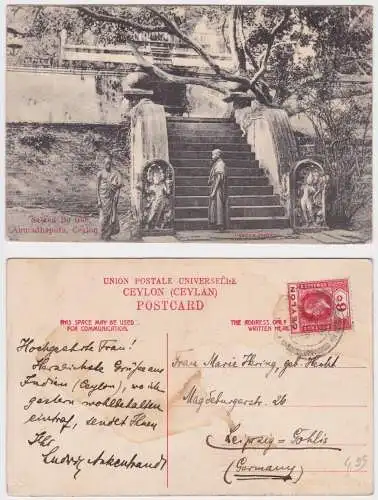 Sacred Bo tree
Anuradhapura, Ceylon
UNION POSTALE UNIVERSELLE
CEYLON (CEYLAN)
POSTCARD
THIS SPACE MAY BE USED
FOR COMMUNICATION.
THE ADDRESS ONLY
WRITTEN HERE
CEYLON
6c
Hochgeehrte Frau!
Herzlichste Grüße aus
Indien (Ceylon), wo ich
gestern wohlbehalten
eintraf, sendet Ihnen
Ihr
Ludwig Ankenbrandt
Frau Marie Hering, geb. Hecht
Magdeburgerstr. 26
Leipzig-Gohlis
(Germany)
4,99